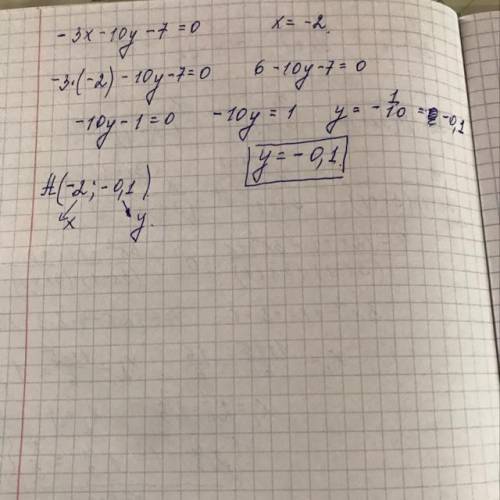 -3x-10y-7=0 x=-2.
-3·(-2)-10y-7=0 6-10y-7=0
-10y-1=0 -10y=1 y=-1/10=-0,1
y=-0,1
A(-2;-0,1)
x y.